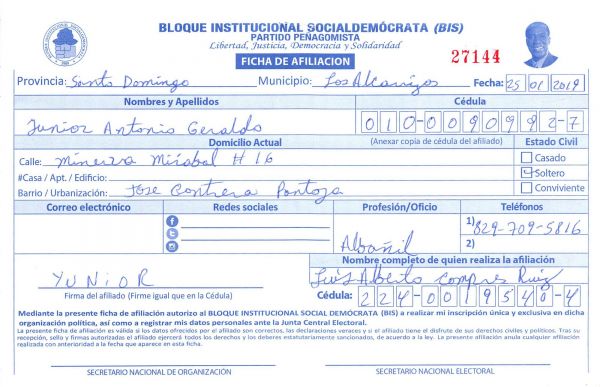 BLOQUE INSTITUCIONAL SOCIALDEMÓCRATA (BIS)
PARTIDO PEÑAGOMISTA
Libertad, Justicia, Democracia y Solidaridad
FICHA DE AFILIACION
27144
Provincia: Santo Domingo Municipio: Los Alcarrizos Fecha: 25 01 2019
Nombres y Apellidos Cédula
Junior Antonio Geraldo 010-0090992-7
Domicilio Actual (Anexar copia de cédula del afiliado) Estado Civil
Calle: Minerva Mirabal # 16 Casado
#Casa / Apt. / Edificio: Soltero
Barrio / Urbanización: Jose Contrera Pontoja Conviviente
Correo electrónico Redes sociales Profesión/Oficio Teléfonos
Albañil 1) 829-709-5816
2)
Nombre completo de quien realiza la afiliación
YUNIOR Luis Alberto Compres Ruiz
Firma del afiliado (Firme igual que en la Cédula) Cédula: 224-0019540-4
Mediante la presente ficha de afiliación autorizo al BLOQUE INSTITUCIONAL SOCIAL DEMÓCRATA (BIS) a realizar mi inscripción única y exclusiva en dicha
organización política, así como a registrar mis datos personales ante la Junta Central Electoral.
La presente ficha de afiliación es válida si los datos ofrecidos por el afiliado son correctos, las declaraciones veraces y si el afiliado tiene el disfrute de sus derechos civiles y políticos. Tras su
recepción, sello y firmas autorizadas el afiliado ejercerá todos los derechos y los deberes estatutariamente sancionados, de acuerdo a la ley. La presente afiliación anula cualquier afiliación
realizada con anterioridad a la fecha que aparece en esta ficha.
SECRETARIO NACIONAL DE ORGANIZACIÓN SECRETARIO NACIONAL ELECTORAL